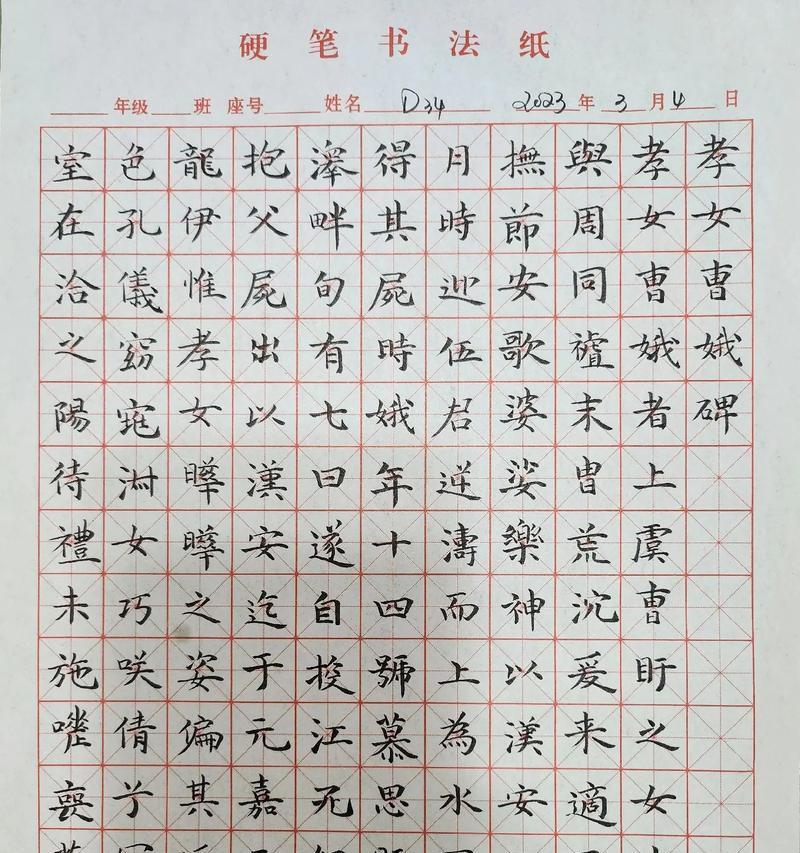 硬笔书法纸
年级 班 座号 姓名 D34 2023 年 3 月 4 日
孝女曹娥碑
孝女曹娥者上虞曹盱之女
與周同末胄荒沉爰来適
撫節安歌婆娑樂神以漢安
月時迎伍君逆濤而上為水
得其屍時娥年十四號慕思
澤畔旬有七日遂自投江死
抱父屍出以漢安迄于元嘉
龍伊惟孝女曄曄之姿偏其
色孔儀窈窕淑女巧咲倩兮
室在洽之陽待禮未施嗟喪